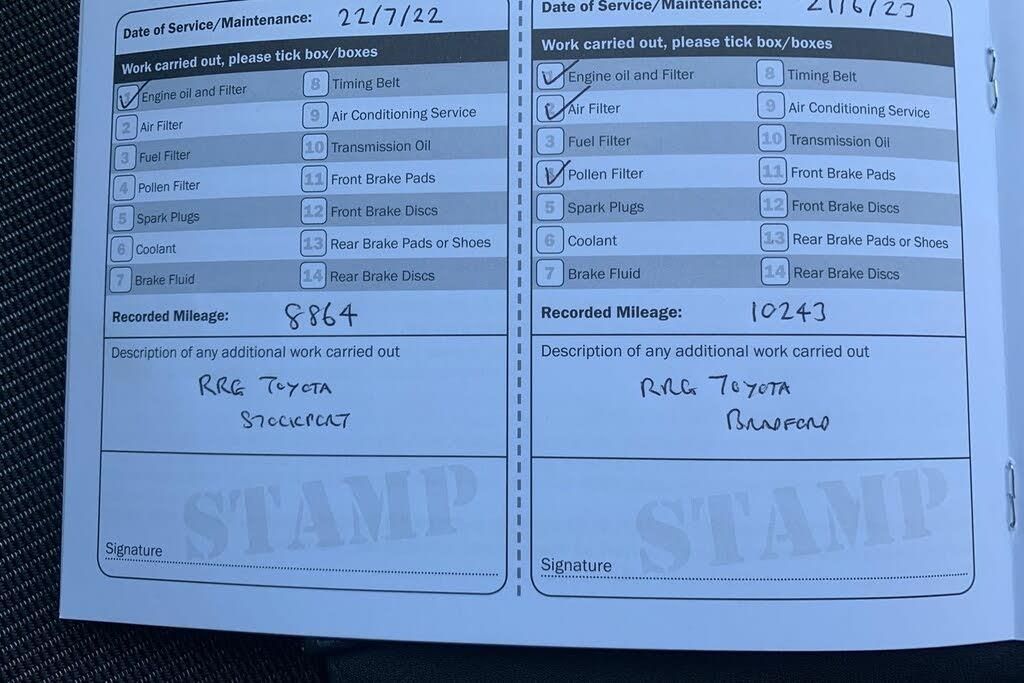 Date of Service/Maintenance: 22/7/22
Work carried out, please tick box/boxes
1 Engine oil and Filter
2 Air Filter
3 Fuel Filter
4 Pollen Filter
5 Spark Plugs
6 Coolant
7 Brake Fluid
8 Timing Belt
9 Air Conditioning Service
10 Transmission Oil
11 Front Brake Pads
12 Front Brake Discs
13 Rear Brake Pads or Shoes
14 Rear Brake Discs
Recorded Mileage: 8864
Description of any additional work carried out
RRG TOYOTA
STOCKPORT
STAMP
Signature
Date of Service/Maintenance: 21/6/23
Work carried out, please tick box/boxes
Engine oil and Filter
2 Air Filter
3 Fuel Filter
Pollen Filter
5 Spark Plugs
6 Coolant
7 Brake Fluid
8 Timing Belt
9 Air Conditioning Service
10 Transmission Oil
11 Front Brake Pads
12 Front Brake Discs
13 Rear Brake Pads or Shoes
14 Rear Brake Discs
Recorded Mileage: 10243
Description of any additional work carried out
RRG TOYOTA
BRADFORD
STAMP
Signature